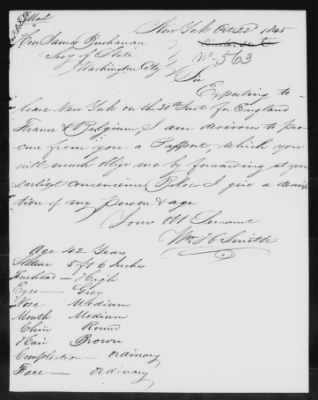 New York Oct 22d 1845
Hon James Buchanan
Secy of State
Washington City
No. 563
Sir
Expecting to
leave New York on the 30th Inst for England
France & Belgium, I am desirous to pro-
cure from you a Passport, which you
will much oblige me by forwarding at your
earliest convenience, Below I give a descrip
tion of my person & age
Your Obt Servant
Wm H C Smith
Age 42 Years
Stature 5 ft 6 Inches
Forehead — High
Eyes — Grey
Nose Medium
Mouth Medium
Chin Round
Hair Brown
Complection — ordinary
Face — ordinary